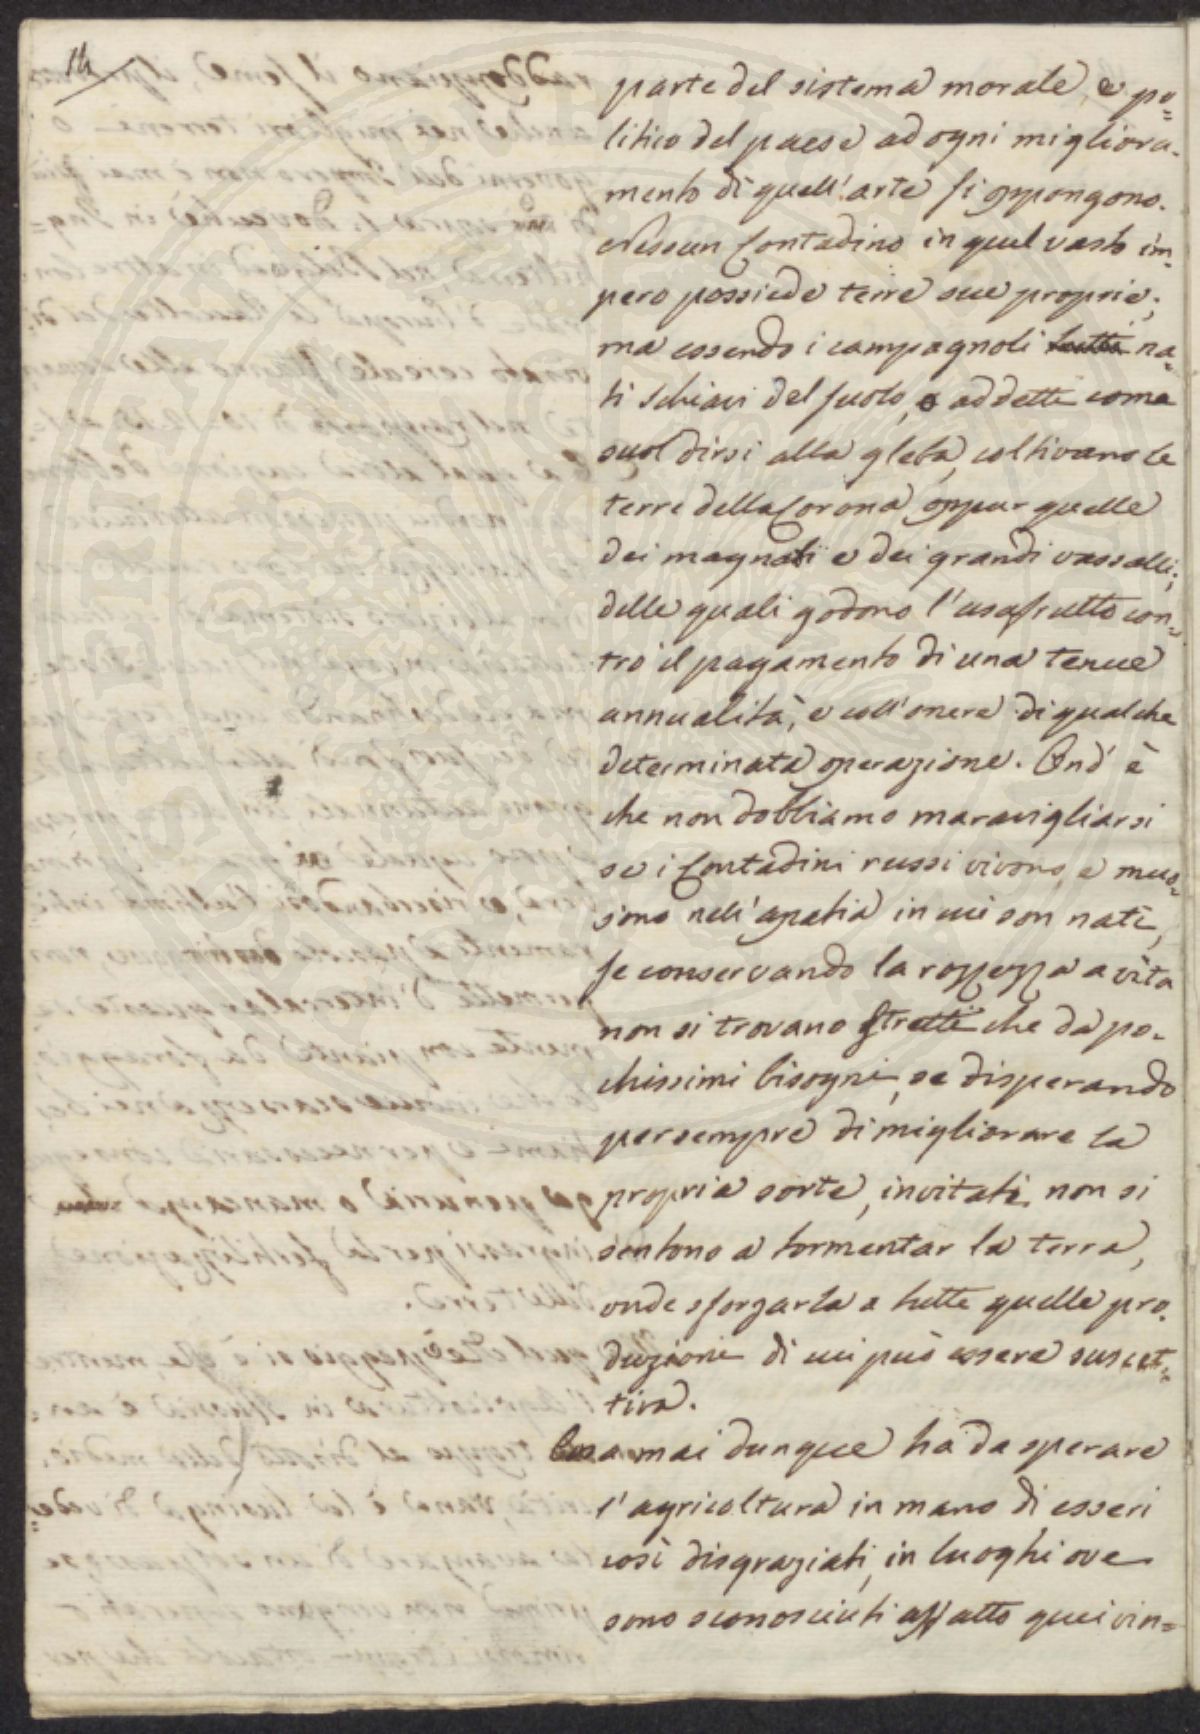 14
parte del sistema morale, e po=
litico del paese ad ogni migliora-
mento di quell'arte si oppongono.
Nessun Contadino in quel vasto im-
pero possiede terre sue proprie;
ma essendo i campagnoli tutti na-
ti schiavi del suolo, e addetti come
suol dirsi alla gleba, coltivano le
terre della Corona, oppur quelle
dei magnati e dei grandi vassalli;
delle quali godono l'usafrutto con-
tro il pagamento di una tenue
annualità, e coll'onere di qualche
determinata operazione. Ond'è
che non dobbiamo maravigliarsi
se i Contadini russi vivono, e muo-
iono nell'apatia in cui son nati,
se conservando la rozzezza a vita
non si trovano stretti che da po-
chissimi bisogni, se disperando
per sempre di migliorare la
propria sorte, invitati non si
sentono a tormentar la terra,
onde sforzarla a tutte quelle pro-
duzioni di cui può essere suscet-
tiva.
Cosa mai dunque ha da sperare
l'agricoltura in mano di esseri
così disgraziati, in luoghi ove
sono sconosciuti affatto quei vin=